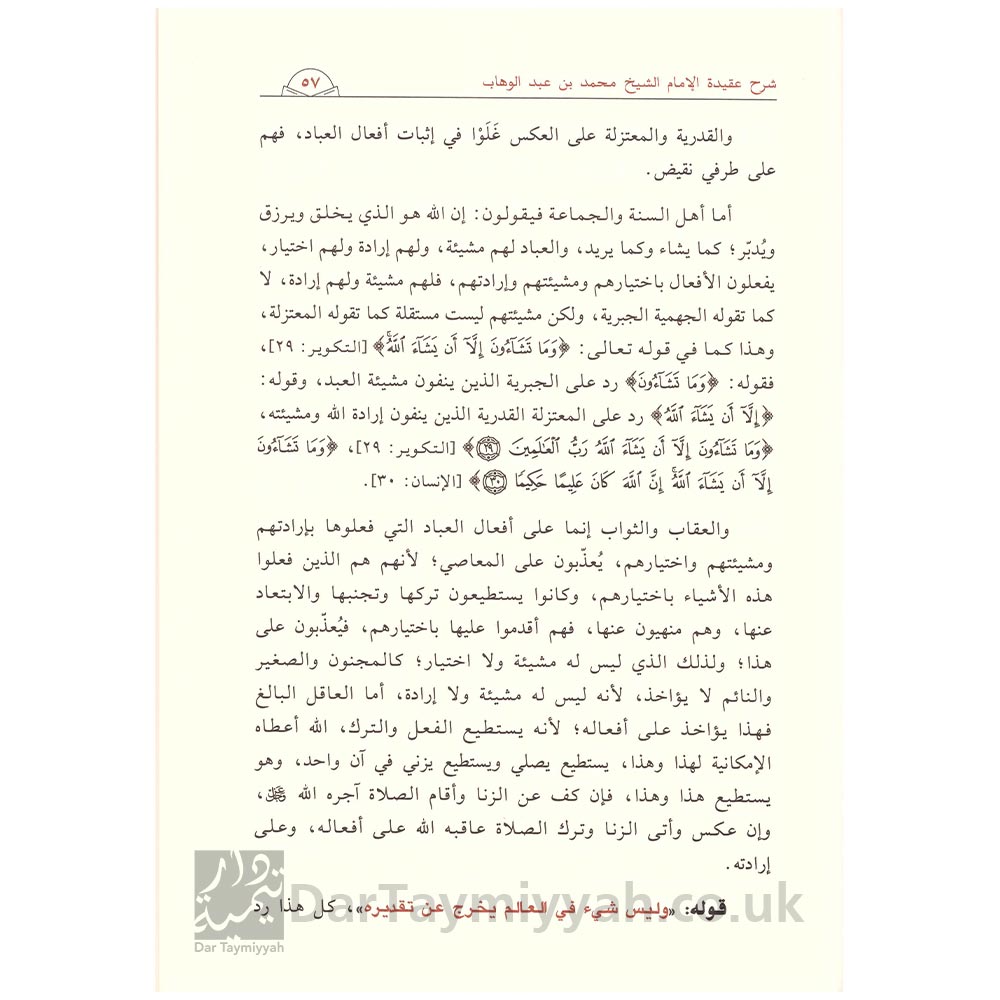 شرح عقيدة الإمام الشيخ محمد بن عبد الوهاب
٥٧
والقدرية والمعتزلة على العكس غَلَوْا في إثبات أفعال العباد، فهم
على طرفي نقيض.
أما أهل السنة والجماعة فيقولون: إن الله هو الذي يخلق ويرزق
ويُدبّر؛ كما يشاء وكما يريد، والعباد لهم مشيئة، ولهم إرادة ولهم اختيار،
يفعلون الأفعال باختيارهم ومشيئتهم وإرادتهم، فلهم مشيئة ولهم إرادة، لا
كما تقوله الجهمية الجبرية، ولكن مشيئتهم ليست مستقلة كما تقوله المعتزلة،
وهذا كما في قوله تعالى: ﴿وَمَا تَشَآءُونَ إِلَّآ أَن يَشَآءَ ٱللَّهُۚ﴾ [التكوير: ٢٩]،
فقوله: ﴿وَمَا تَشَآءُونَ﴾ رد على الجبرية الذين ينفون مشيئة العبد، وقوله:
﴿إِلَّآ أَن يَشَآءَ ٱللَّهُ﴾ رد على المعتزلة القدرية الذين ينفون إرادة الله ومشيئته،
﴿وَمَا تَشَآءُونَ إِلَّآ أَن يَشَآءَ ٱللَّهُ رَبُّ ٱلْعَـٰلَمِينَ ٢٩﴾ [التكوير: ٢٩]، ﴿وَمَا تَشَآءُونَ
إِلَّآ أَن يَشَآءَ ٱللَّهُۚ إِنَّ ٱللَّهَ كَانَ عَلِيمًا حَكِيمًا ٣٠﴾ [الإنسان: ٣٠].
والعقاب والثواب إنما على أفعال العباد التي فعلوها بإرادتهم
ومشيئتهم واختيارهم، يُعذّبون على المعاصي؛ لأنهم هم الذين فعلوا
هذه الأشياء باختيارهم، وكانوا يستطيعون تركها وتجنبها والابتعاد
عنها، وهم منهيون عنها، فهم أقدموا عليها باختيارهم، فيُعذّبون على
هذا؛ ولذلك الذي ليس له مشيئة ولا اختيار؛ كالمجنون والصغير
والنائم لا يؤاخذ، لأنه ليس له مشيئة ولا إرادة، أما العاقل البالغ
فهذا يؤاخذ على أفعاله؛ لأنه يستطيع الفعل والترك، الله أعطاه
الإمكانية لهذا وهذا، يستطيع يصلي ويستطيع يزني في آن واحد، وهو
يستطيع هذا وهذا، فإن كف عن الزنا وأقام الصلاة آجره الله ﷿،
وإن عكس وأتى الزنا وترك الصلاة عاقبه الله على أفعاله، وعلى
إرادته.
قوله: «وليس شيء في العالم يخرج عن تقديره»، كل هذا رد
دار تيمية
Dar Taymiyyah
DarTaymiyyah.co.uk